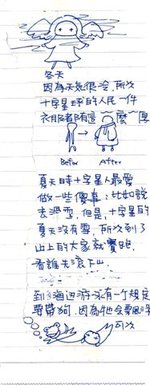 冬天
因為天氣很冷,所以
十字星球的人民一件
衣服都有這麼厚
Before After
夏天時十字星人最愛
做一些傻事:比如說
去滑雪,但是,十字星的
夏天沒有雪,所以到了
山上的大家就賽跑,
看誰先滾下山
到海邊游泳有一個規定
要帶狗,因為牠會
可以